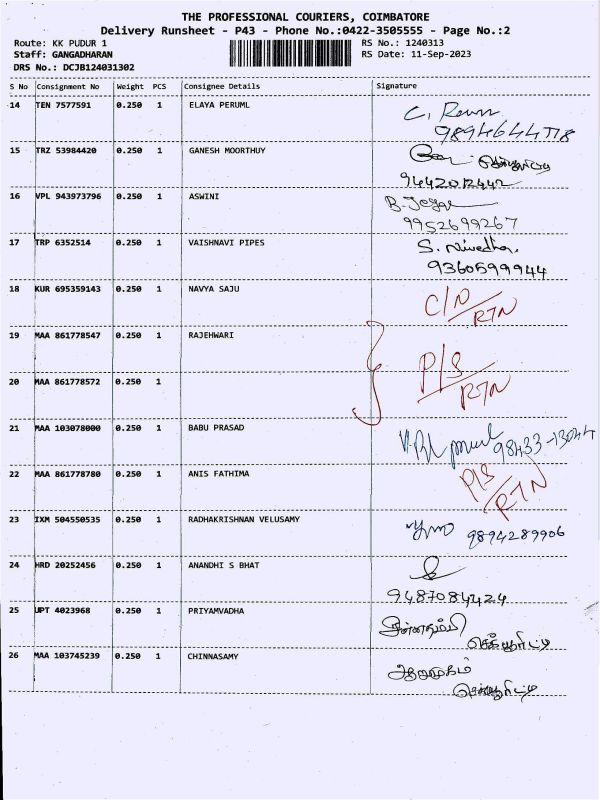 THE PROFESSIONAL COURIERS, COIMBATORE
Delivery Runsheet - P43 - Phone No.:0422-3505555 - Page No.:2
Route: KK PUDUR 1 RS No.: 1240313
Staff: GANGADHARAN RS Date: 11-Sep-2023
DRS No.: DCJB124031302
S No Consignment No Weight PCS Consignee Details Signature
14 TEN 7577591 0.250 1 ELAYA PERUML
15 TRZ 53984420 0.250 1 GANESH MOORTHUY
9442012442
16 VPL 943973796 0.250 1 ASWINI
9952699267
17 TRP 6352514 0.250 1 VAISHNAVI PIPES S. Nivedha
9360599944
18 KUR 695359143 0.250 1 NAVYA SAJU C/N/RTN
19 MAA 861778547 0.250 1 RAJEHWARI
P/S/RTN
20 MAA 861778572 0.250 1
21 MAA 103078000 0.250 1 BABU PRASAD 98433-13044
22 MAA 861778780 0.250 1 ANIS FATHIMA P/S/RTN
23 IXM 504550535 0.250 1 RADHAKRISHNAN VELUSAMY 9894289906
24 HRD 20252456 0.250 1 ANANDHI S BHAT
9487084424
25 UPT 4023968 0.250 1 PRIYAMVADHA சின்னதம்பி
செக்யூரிட்டி
26 MAA 103745239 0.250 1 CHINNASAMY ஆறுமுகம்
செக்யூரிட்டி